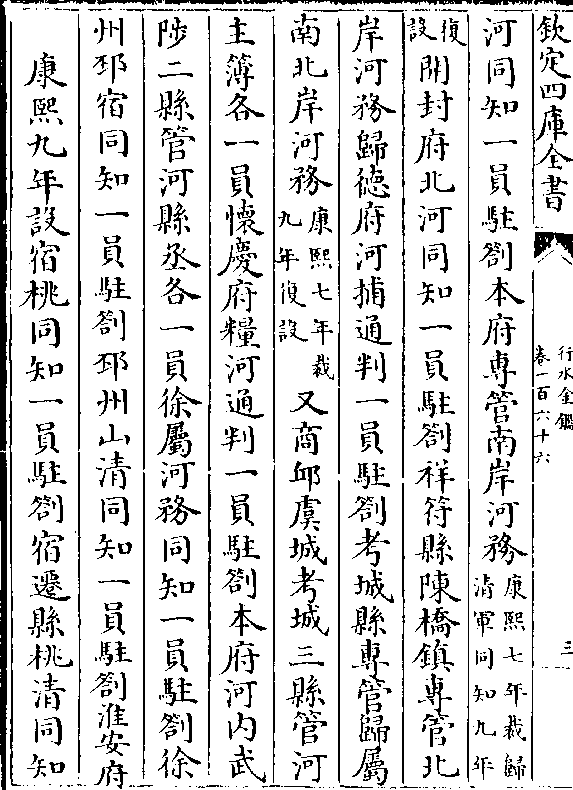 欽定四庫全書
行水金鑑
卷一百六十六
三
河同知一員駐劄本府専管南岸河務康熙七年裁歸清軍同知九年
復設開封府北河同知一員駐劄祥符縣陳橋鎮専管北
岸河務歸徳府河捕通判一員駐劄考城縣専管歸屬
南北岸河務康熙七年裁九年復設又商邱虞城考城三縣管河
主簿各一員懷慶府糧河通判一員駐劄本府河内武
陟二縣管河縣丞各一員徐屬河務同知一員駐劄徐
州邳宿同知一員駐劄邳州山清同知一員駐劄淮安府
康熙九年設宿桃同知一員駐劄宿遷縣桃清同知